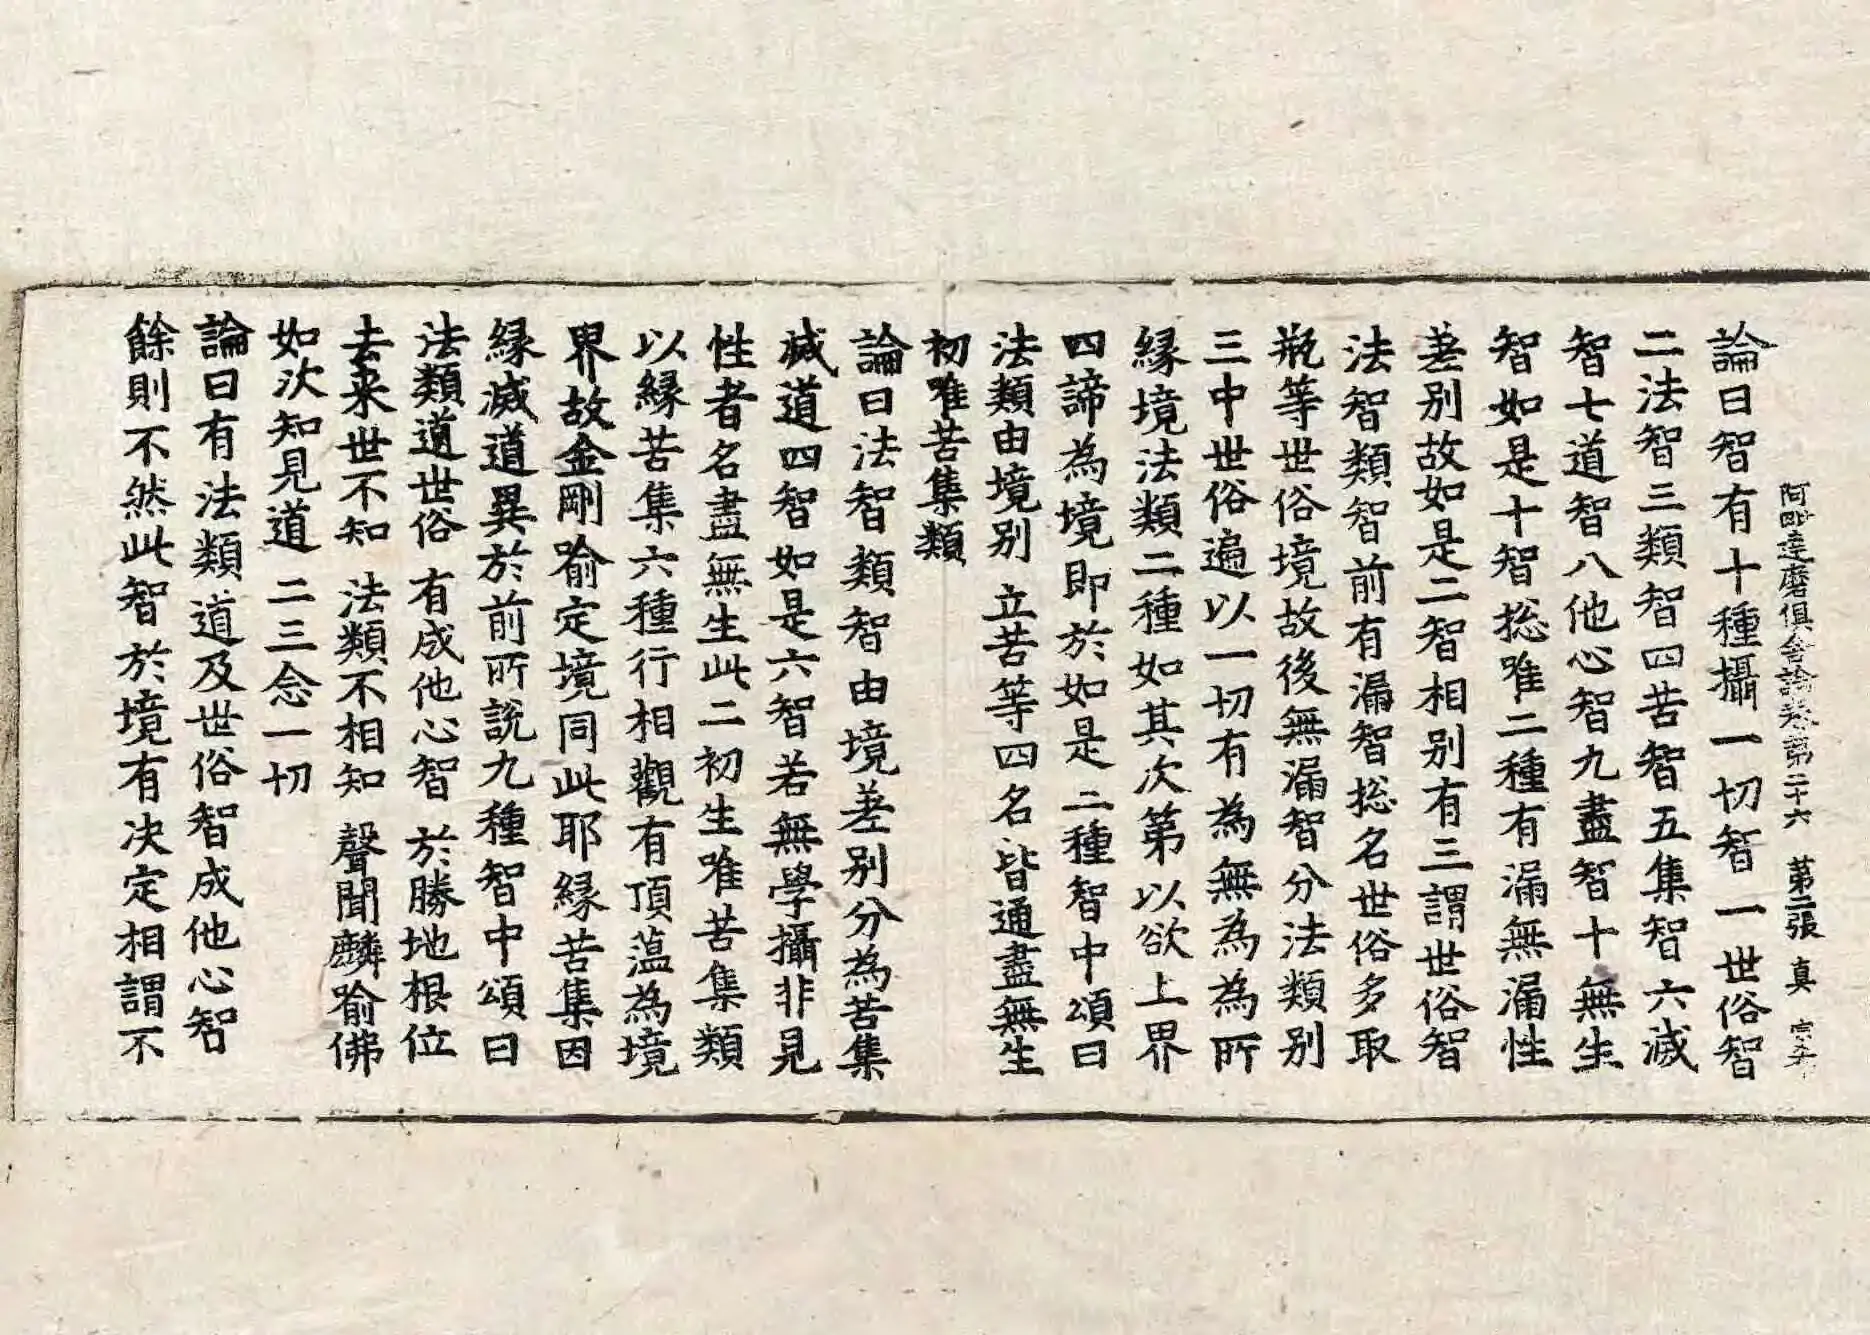 阿毗達磨俱舍論卷第二十六　第二張　真
論曰智有十種攝一切智一世俗智
二法智三類智四苦智五集智六滅
智七道智八他心智九盡智十無生
智如是十智揔唯二種有漏無漏性
差別故如是二智相別有三謂世俗智
法智類智前有漏智揔名世俗多取
瓶等世俗境故後無漏智分法類別
三中世俗遍以一切有為無為為所
緣境法類二種如其次第以欲上界
四諦為境即於如是二種智中頌曰
法類由境別　立苦等四名　皆通盡無生
初唯苦集類
論曰法智類智由境差別分為苦集
滅道四智如是六智若無學攝非見
性者名盡無生此二初生唯苦集類
以緣苦集六種行相觀有頂蕰為境
界故金剛喻定境同此耶緣苦集因
緣滅道異於前所說九種智中頌曰
法類道世俗　有成他心智　於勝地根位
去来世不知　法類不相知　聲聞麟喻佛
如次知見道　二三念一切
論曰有法類道及世俗智成他心智
餘則不然此智於境有決定相謂不